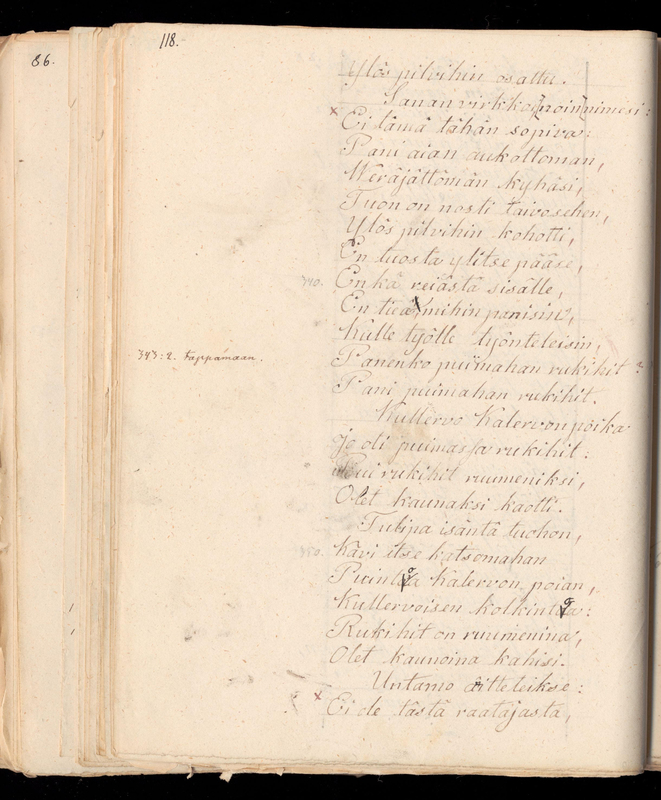 86.
118.
Ylös pilvihin osattu.
Sanan virkkoi noin nimesi:
× Ei tämä tähän sopiva:
Pani aian aukottoman,
Weräjättömän kyhäsi,
Tuon on nosti taivosehen,
Ylös pilvihin kohotti,
En tuosta ylitse pääse,
340. Enkä reiästä sisälle,
En tieä, mihin panisin,
Külle työlle työnteleisin,
343: 2. tappamaan. Panenko puimahan rukihit?
Pani puimahan rukihit.
Kullervo Kalervon poika
Jo oli puimassa rukihit:
Pui rukihit ruumeniksi,
Olet kaunaksi kaotti.
Tulipa isäntä tuohon,
350. Kävi itse katsomahan
Puintoa Kalervon poian,
Kullervoisen kolkintoa:
Rukihit on ruumenina,
Olet kaunoina kahisi.
Untamo äitteleikse:
× Ei ole tästä raatajasta,